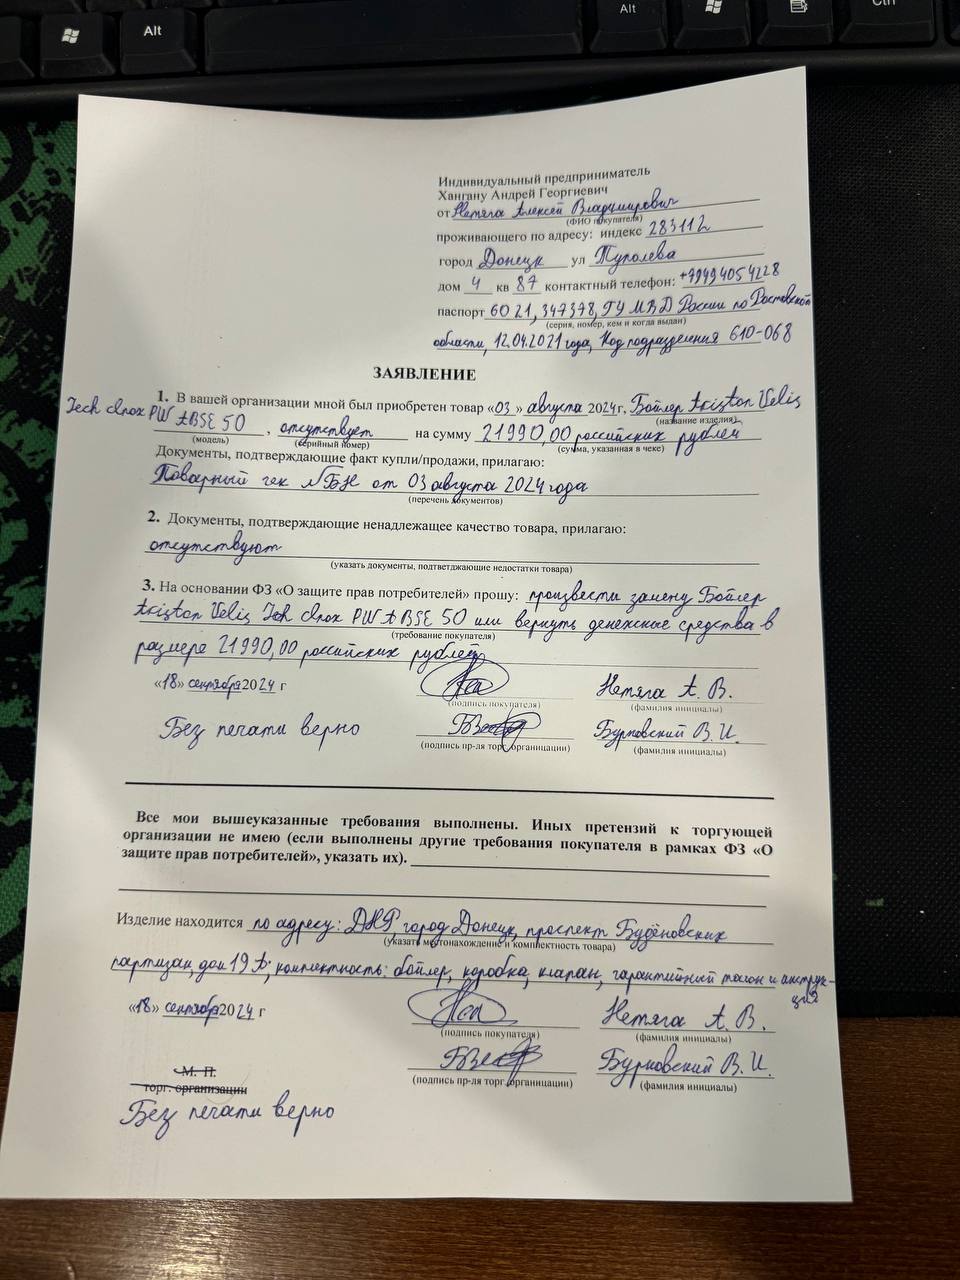 Alt
Alt
Ctrl
Индивидуальный предприниматель
Хангану Андрей Георгиевич
от Нетяга Алексей Владимирович
(ФИО покупателя)
проживающего по адресу: индекс 283112
город Донецк ул Туполева
дом 4 кв 87 контактный телефон: +79494054228
паспорт 60 21, 347378, ГУ МВД России по Ростовской
(серия, номер, кем и когда выдан)
области, 12.04.2021 года, Код подразделения 610-068
ЗАЯВЛЕНИЕ
1. В вашей организации мной был приобретен товар «03» августа 2024 г, Бойлер Ariston Velis
(название изделия)
Tech Inox PW ABSE 50, отсутствует на сумму 21990,00 российских рублей
(модель) (серийный номер) (сумма, указанная в чеке)
Документы, подтверждающие факт купли/продажи, прилагаю:
Товарный чек №БН от 03 августа 2024 года
(перечень документов)
2. Документы, подтверждающие ненадлежащее качество товара, прилагаю:
отсутствуют
(указать документы, подтветджающие недостатки товара)
3. На основании ФЗ «О защите прав потребителей» прошу: произвести замену Бойлер
Ariston Velis Tech Inox PW ABSE 50 или вернуть денежные средства в
(требование покупателя)
размере 21990,00 российских рублей
«18» сентября 2024 г Нетяга А. В.
(подпись покупателя) (фамилия инициалы)
Без печати верно Бурковский В. И.
(подпись пр-ля торг. организации) (фамилия инициалы)
Все мои вышеуказанные требования выполнены. Иных претензий к торгующей
организации не имею (если выполнены другие требования покупателя в рамках ФЗ «О
защите прав потребителей», указать их).
Изделие находится по адресу: ДНР, город Донецк, проспект Будёновских
(указать местонахождение и комплектность товара)
партизан, дом 19 А; комплектность: бойлер, коробка, клапан, гарантийный талон и инструк-
ция
«18» сентября 2024 г Нетяга А. В.
(подпись покупателя) (фамилия инициалы)
Бурковский В. И.
(подпись пр-ля торг. организации) (фамилия инициалы)
М. П.
торг. организации
Без печати верно